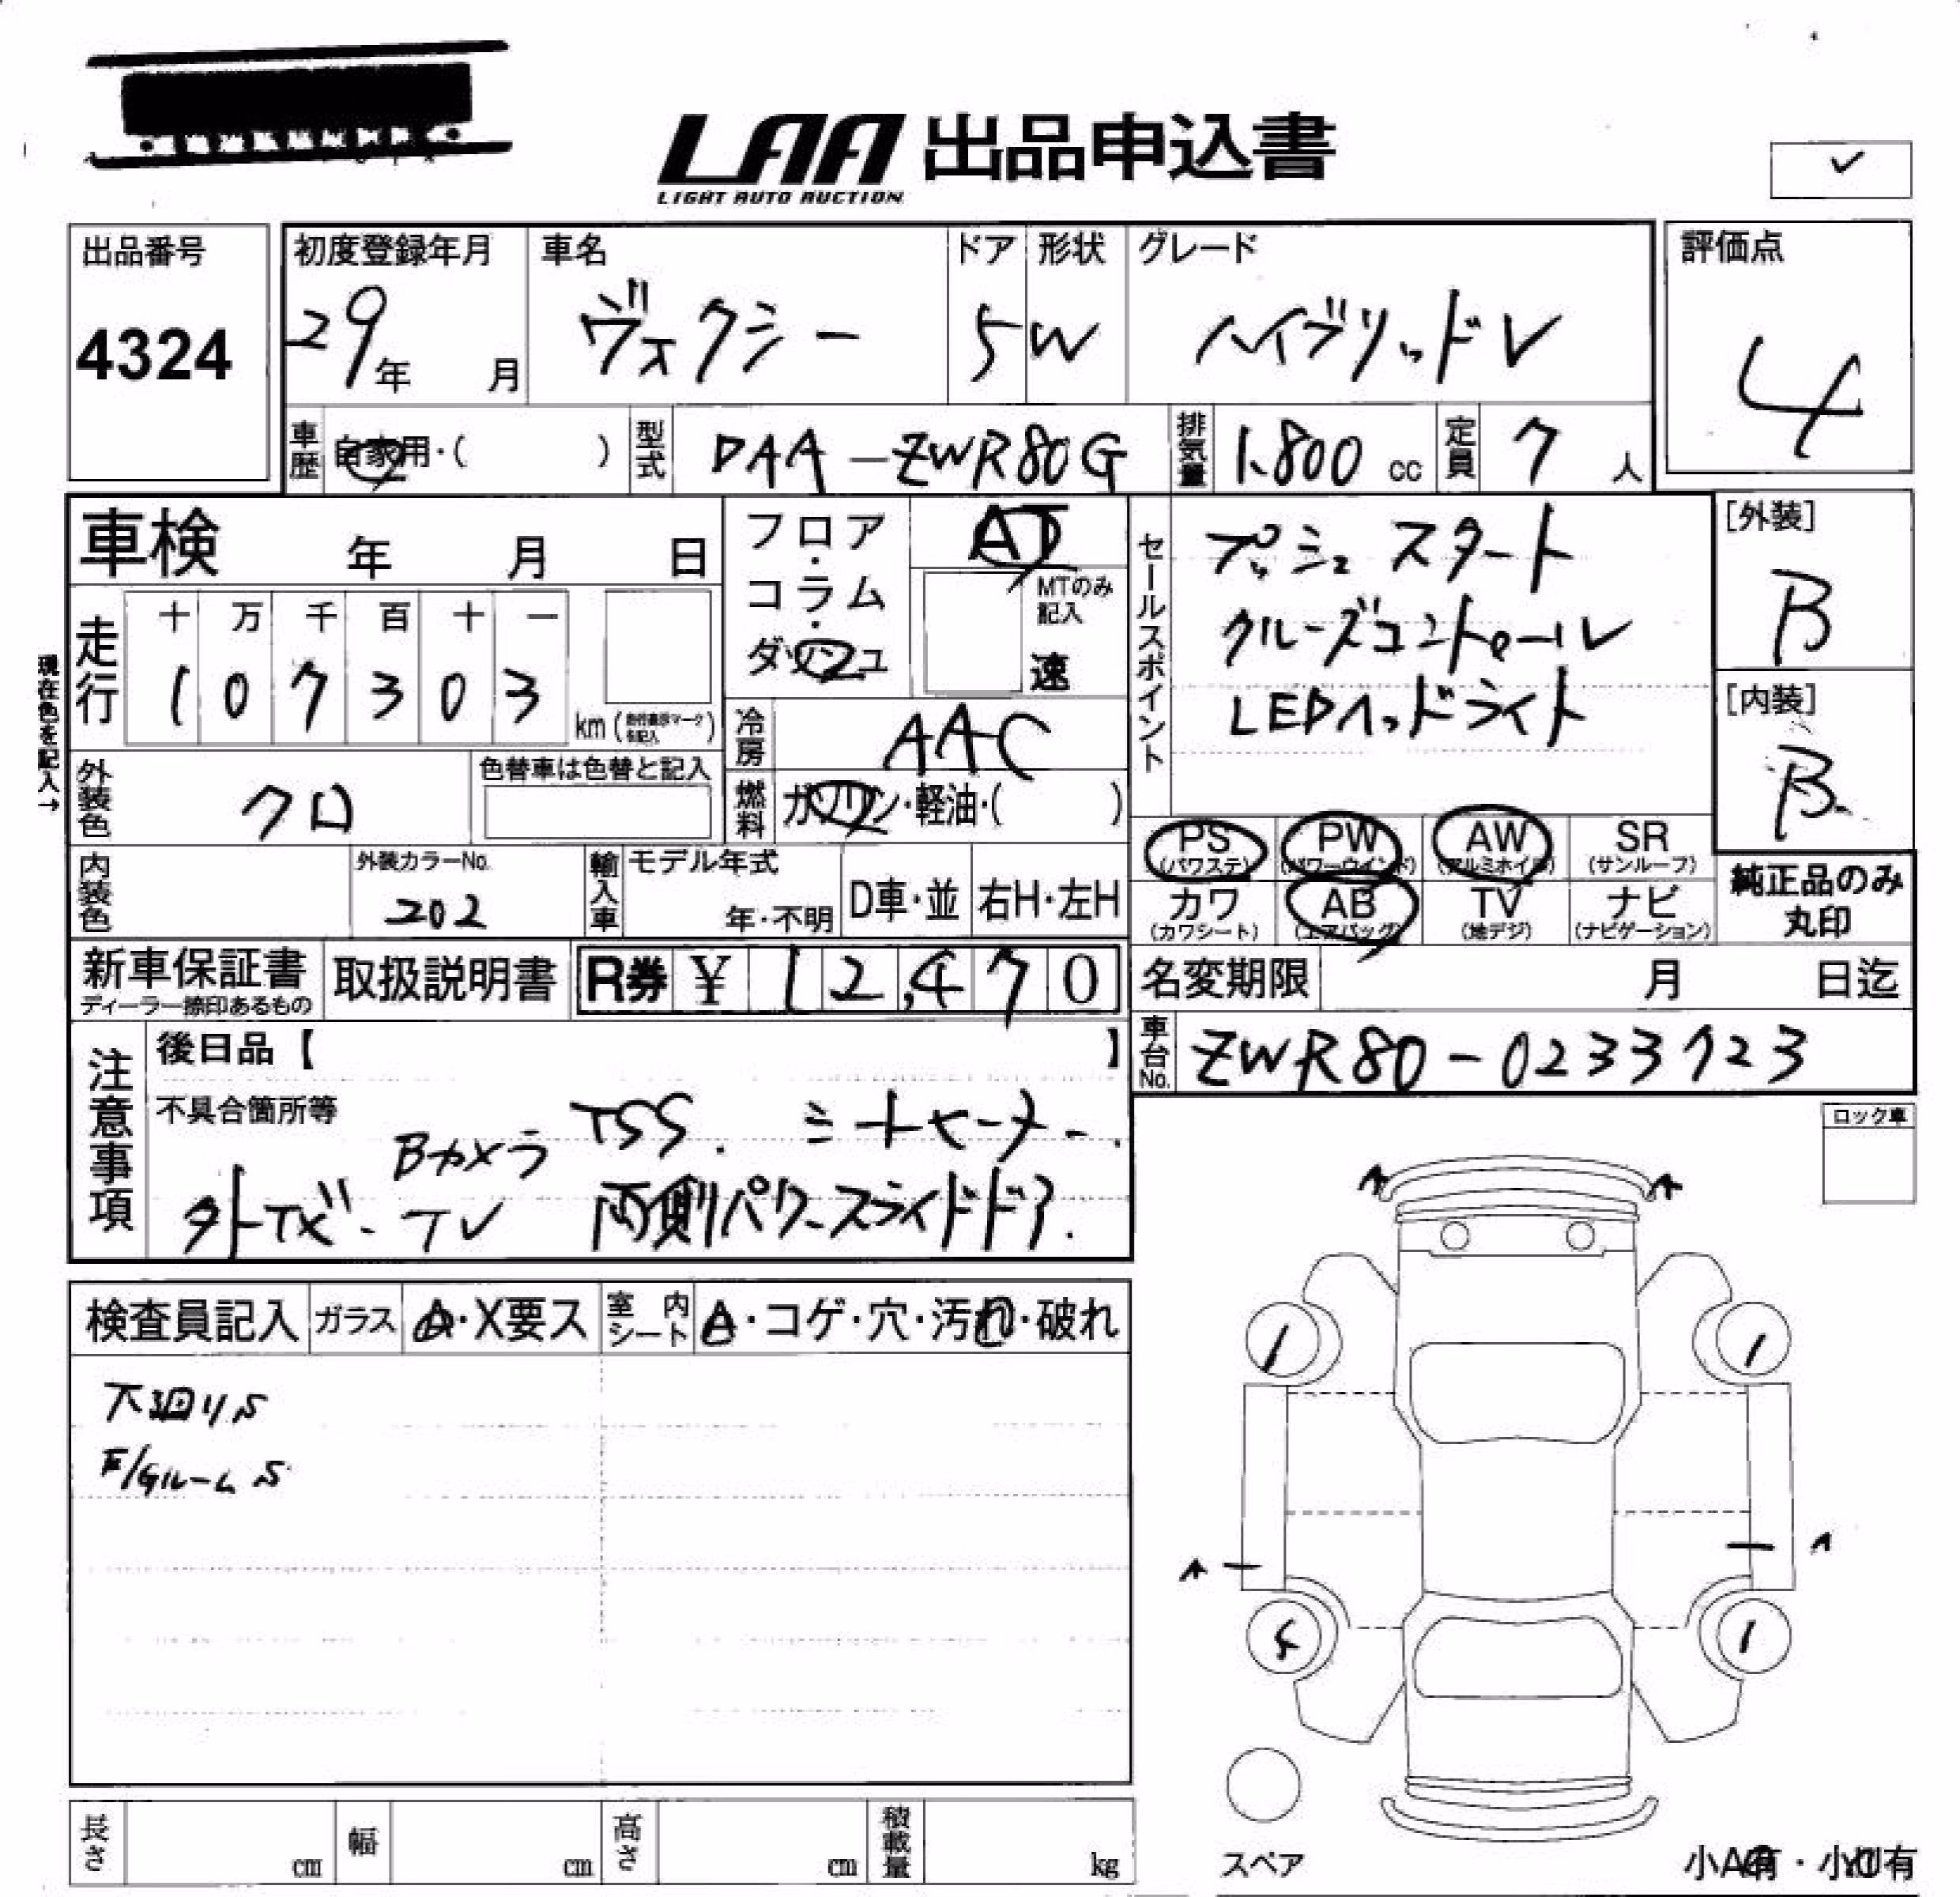 LAA 出品申込書
LIGHT AUTO AUCTION
✓
出品番号
4324
初度登録年月
29年 月
車名
ヴォクシー
ドア
5
形状
W
グレード
ハイブリッドV
評価点
4
車歴
自家用・( )
型式
DAA-ZWR80G
排気量
1.800 cc
定員
7 人
車検 年 月 日
フロア・コラム・ダッシュ
AT
MTのみ記入
速
セールスポイント
プッシュスタート
クルーズコントロール
LEDヘッドライト
[外装]
B
[内装]
B
現在色を記入→
走行
十 万 千 百 十 一
1 0 7 3 0 3
km (走行表示マークを記入)
冷房
AAC
燃料
ガソリン・軽油・( )
外装色
クロ
色替車は色替と記入
内装色
外装カラーNo.
202
輸入車
モデル年式
年・不明
D車・並
右H・左H
PS
(パワステ)
PW
(パワーウインド)
AW
(アルミホイル)
SR
(サンルーフ)
カワ
(カワシート)
AB
(エアバッグ)
TV
(地デジ)
ナビ
(ナビゲーション)
純正品のみ
丸印
新車保証書
ディーラー捺印あるもの
取扱説明書
R券 ¥ 12,470
名変期限 月 日迄
車台No.
ZWR80-0233723
注意事項
後日品【 】
不具合箇所等
TSS. シートヒーター.
Bカメラ
外ナビ・TV
両側パワースライドドア.
ロック車
検査員記入
ガラス
A・X要ス
室内シート
A・コゲ・穴・汚れ・破れ
下廻りS
E/GルームS
A
A
1
1
A
A
S
1
スペア
長さ cm
幅 cm
高さ cm
積載量 kg
小A有・小U有